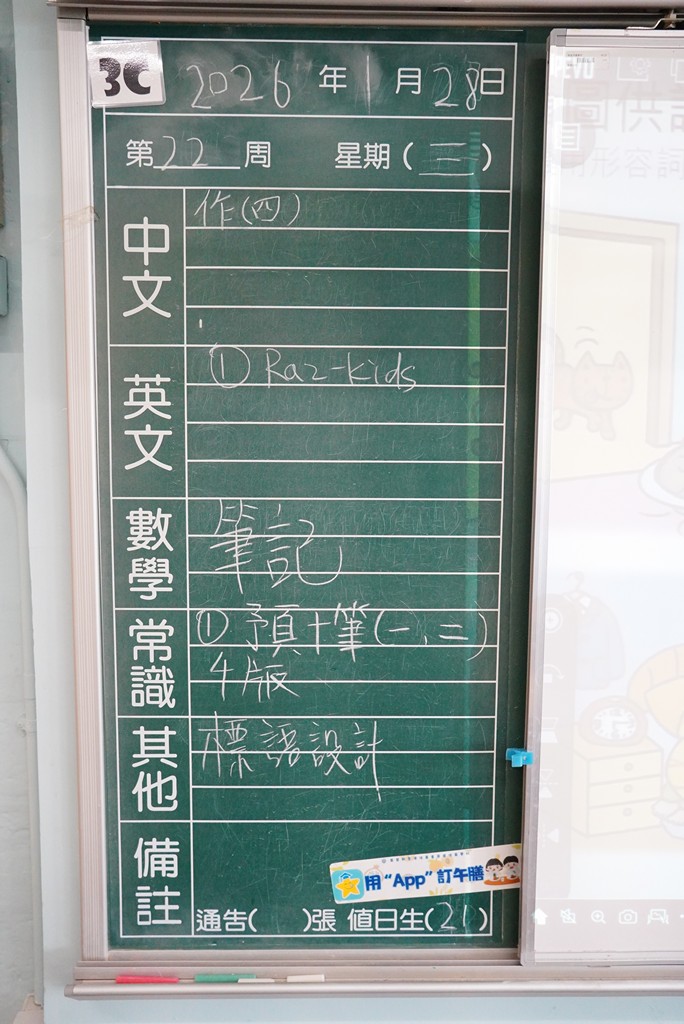 3C
2026年1月28日
第22周 星期(三)
中文
作(四)
英文
① Raz-kids
數學
筆記
常識
① 預+筆(一、二)
4版
其他
標語設計
備註
用“App”訂午膳
通告( )張 值日生(21)